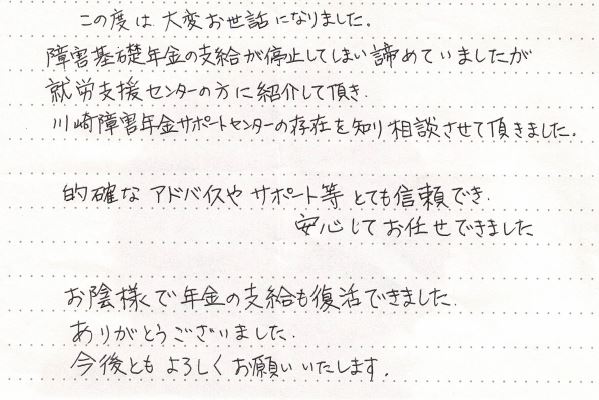 この度は大変お世話になりました.
障害基礎年金の支給が停止してしまい諦めていましたが
就労支援センターの方に紹介して頂き.
川崎障害年金サポートセンターの存在を知り相談させて頂きました.
的確なアドバイスやサポート等とても信頼でき.
安心してお任せできました
お陰様で年金の支給も復活できました.
ありがとうございました.
今後ともよろしくお願いいたします.